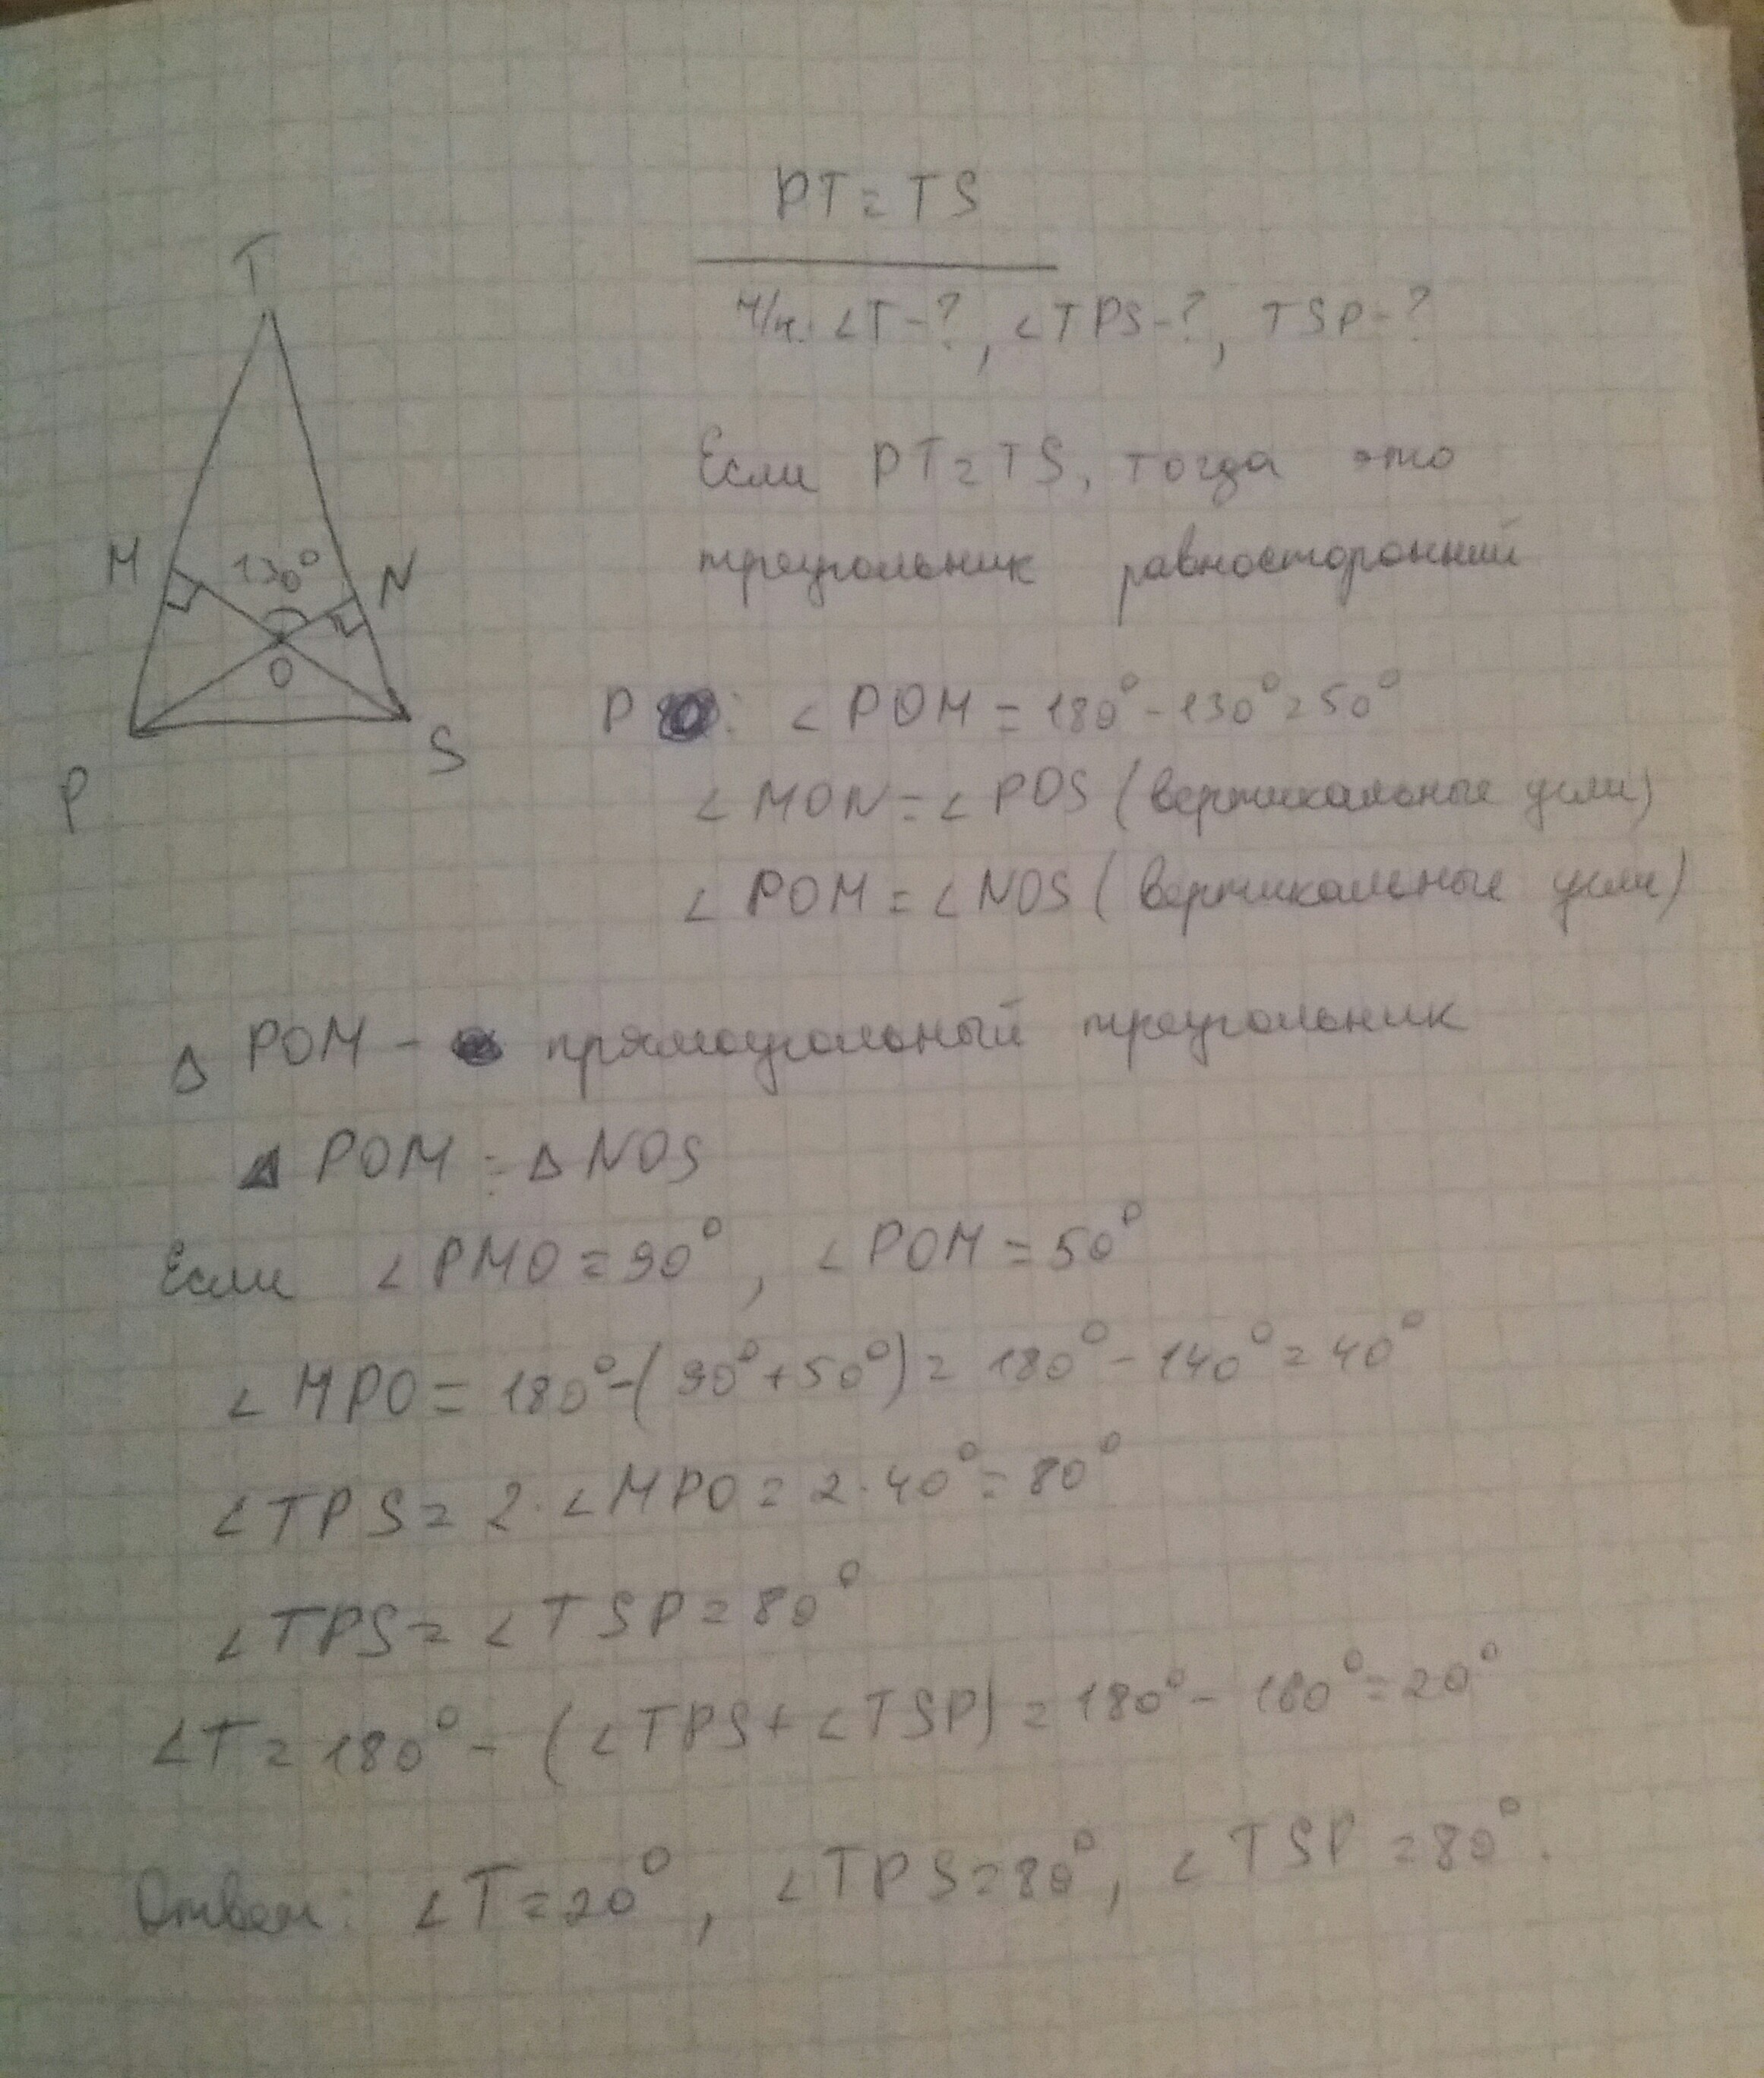 PT = TS
Н/н: ∠T-?, ∠TPS-?, TSP-?
T
M
130°
N
O
P
S
Если PT = TS, тогда это
треугольник равносторонний
P : ∠POM = 180° - 130° = 50°
∠MON = ∠POS (вертикальные углы)
∠POM = ∠NOS (вертикальные углы)
Δ POM - прямоугольный треугольник
Δ POM = Δ NOS
Если ∠PMO = 90°, ∠POM = 50°
∠MPO = 180° - (90° + 50°) = 180° - 140° = 40°
∠TPS = 2 · ∠MPO = 2 · 40° = 80°
∠TPS = ∠TSP = 80°
∠T = 180° - (∠TPS + ∠TSP) = 180° - 160° = 20°
Ответ: ∠T = 20°, ∠TPS = 80°, ∠TSP = 80°.